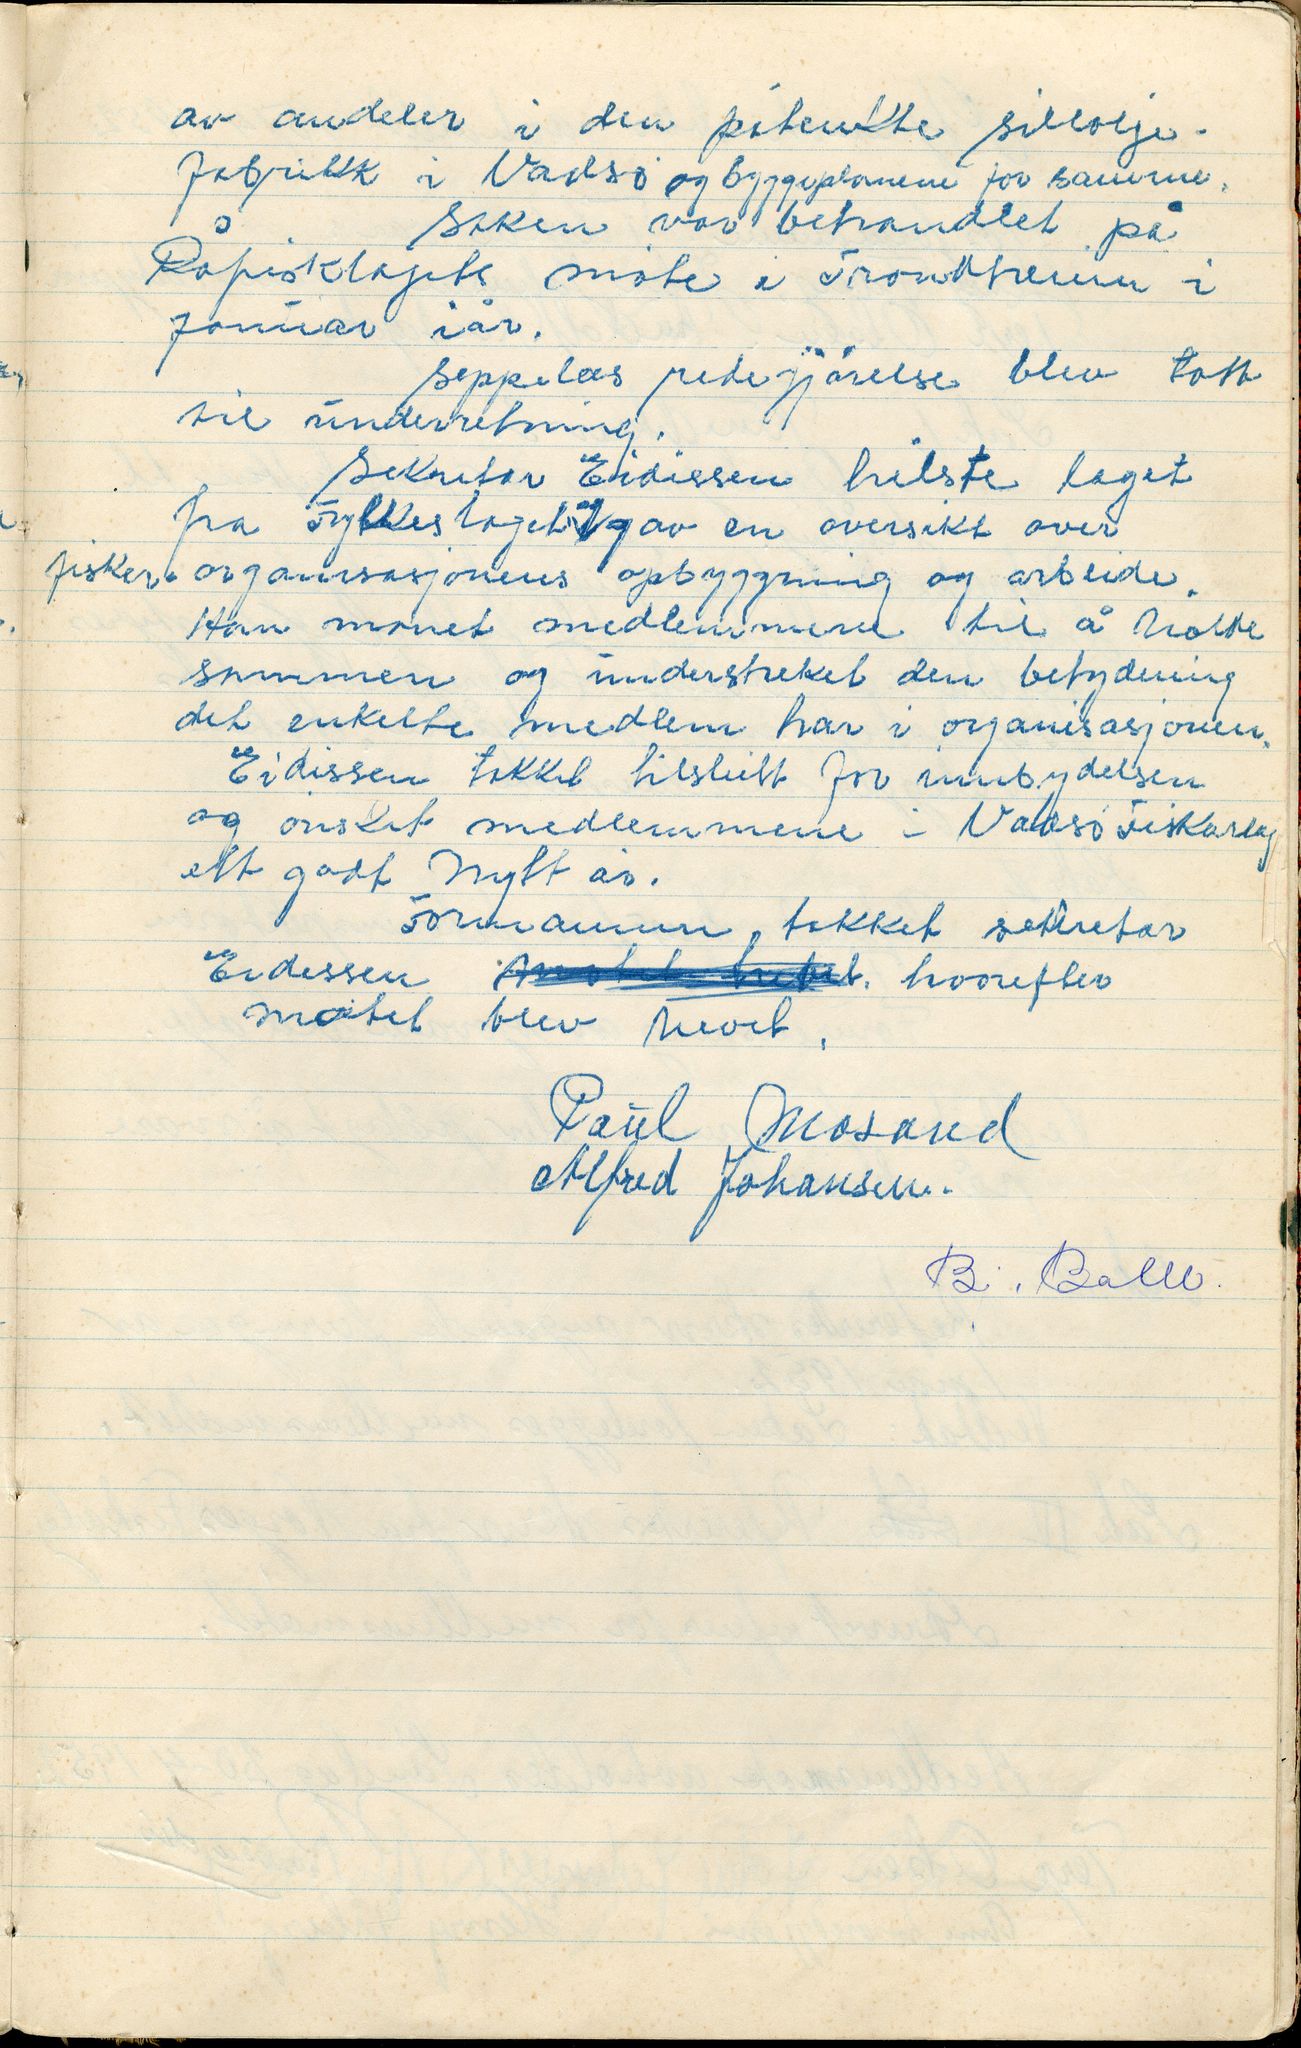 av andeler i den påtenkte sillolje-
fabrikk i Vadsö og byggeplanene for samme.
Saken var behandlet på
Råfisklagets möte i Trondheim i
januar iår.
Seppelas redegjörelse blev tatt
til underretning.
Sekretær Eidissen hilste laget
fra Fylkeslaget og gav en oversikt over
fisker- organisasjonens opbyggning og arbeide.
Han manet medlemmene til å holde
sammen og understreket den betydening
det enkelte medlem har i organisasjonen.
Eidissen takket tilslutt for innbydelsen
og önsket medlemmene i Vadsö Fiskarlag
ett godt nytt år.
Formannen takket sekretær
Eidissen hvorefter
mötet blev hevet.
Paul Mosand
Alfred Johansen.
B. Ballo.